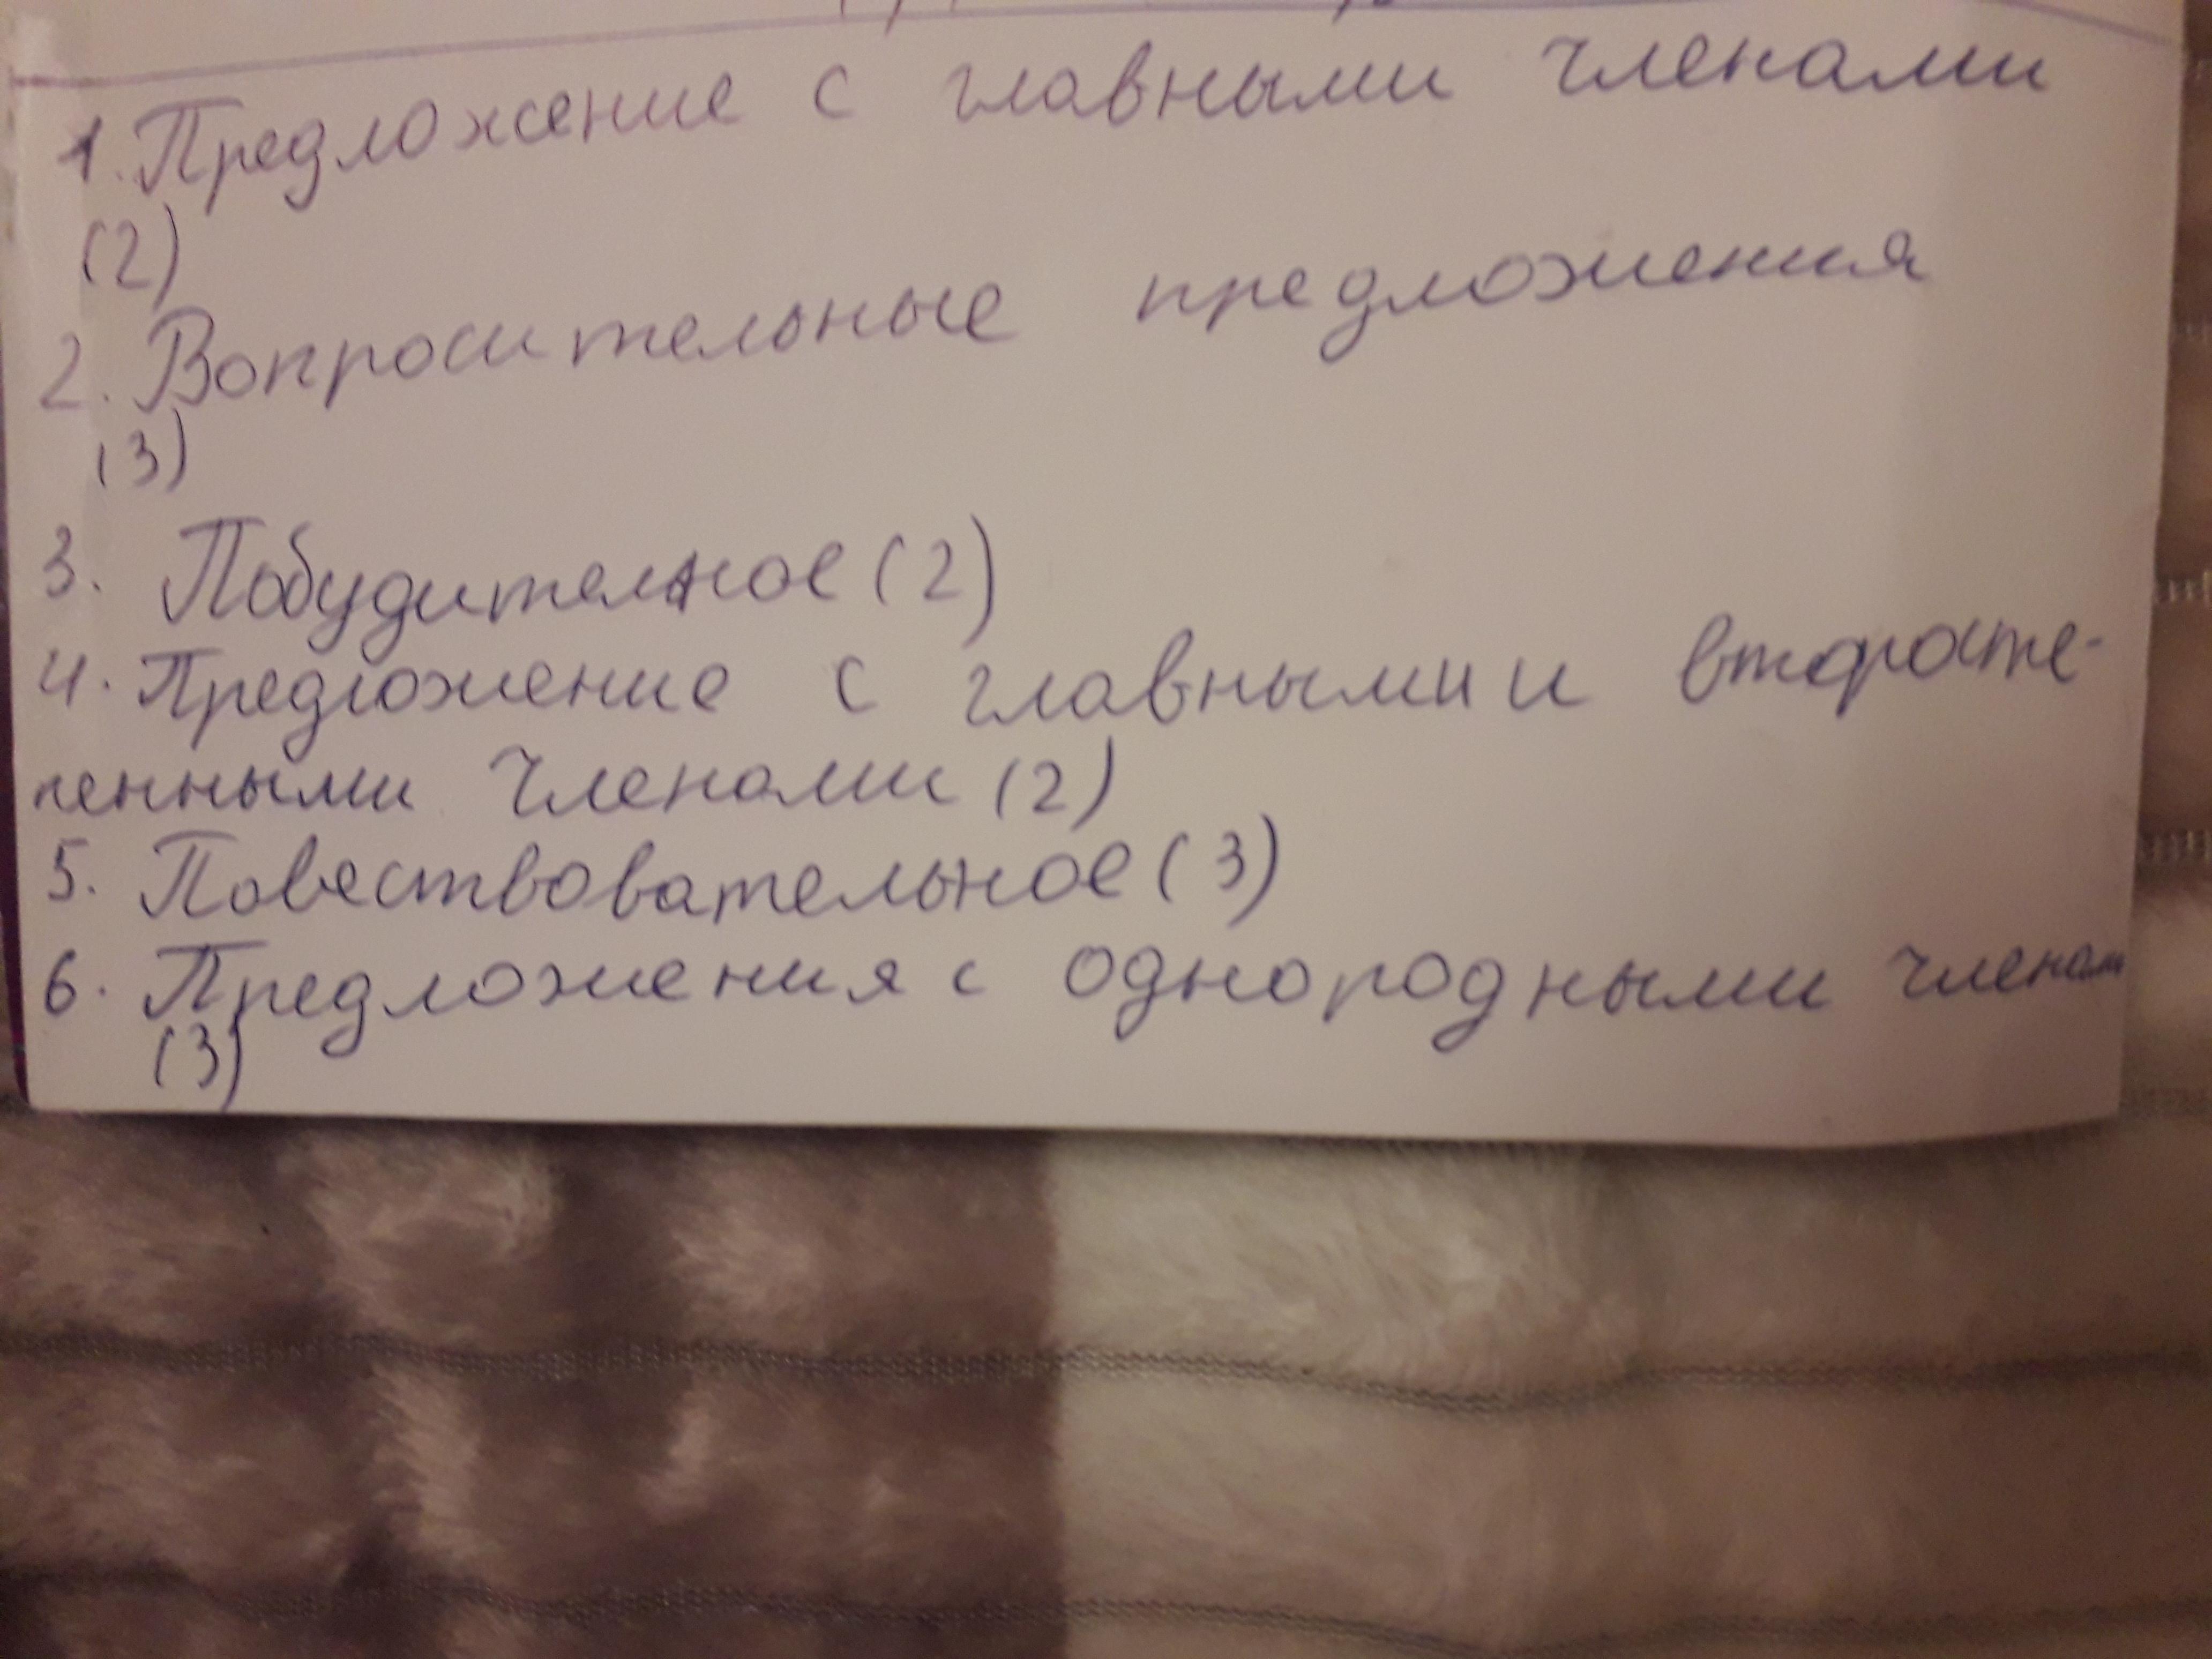 1. Предложение с главными членами
(2)
2. Вопросительные предложения
(3)
3. Побудительное (2)
4. Предложение с главными и второсте-
пенными членами (2)
5. Повествовательное (3)
6. Предложения с однородными членами
(3)